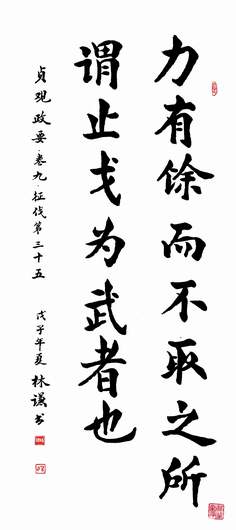 力有馀而不取之所
谓止戈为武者也
贞观政要·卷九·征伐第三十五 戊子年夏 林谦书